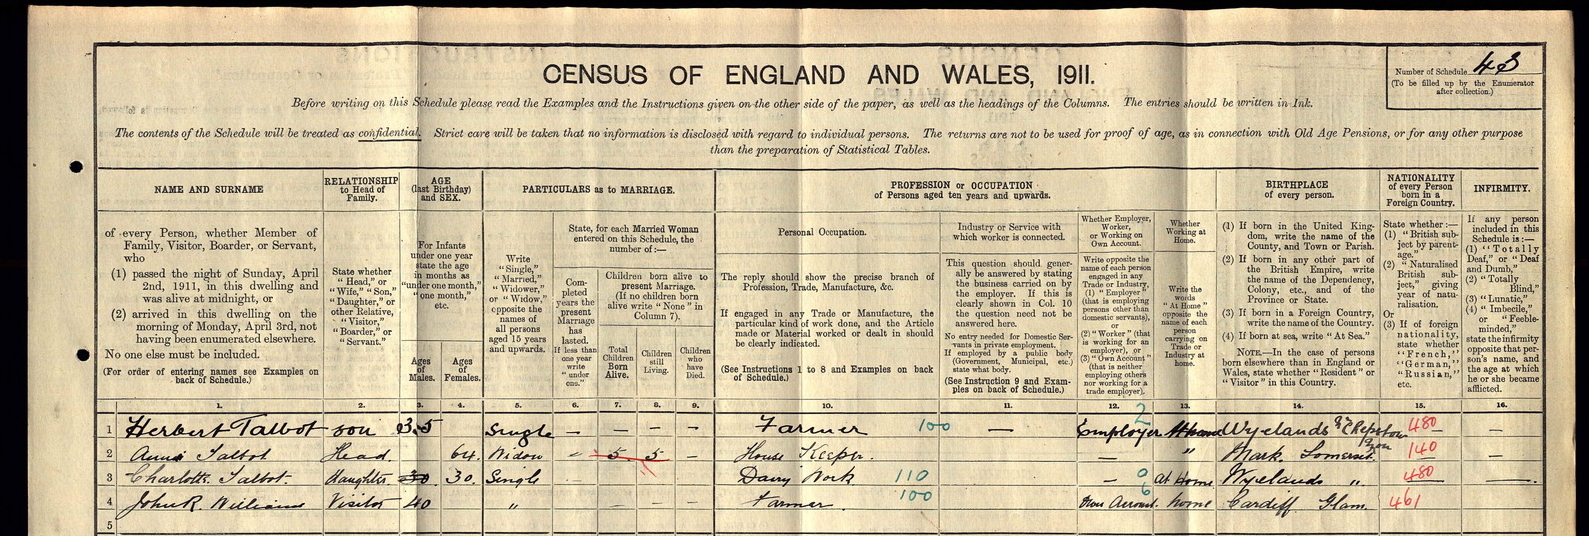 CENSUS OF ENGLAND AND WALES, 1911.
Number of Schedule 43
(To be filled up by the Enumerator
after collection.)
Before writing on this Schedule please read the Examples and the Instructions given on the other side of the paper, as well as the headings of the Columns. The entries should be written in Ink.
The contents of the Schedule will be treated as confidential. Strict care will be taken that no information is disclosed with regard to individual persons. The returns are not to be used for proof of age, as in connection with Old Age Pensions, or for any other purpose
than the preparation of Statistical Tables.
NAME AND SURNAME
of every Person, whether Member of
Family, Visitor, Boarder, or Servant,
who
(1) passed the night of Sunday, April
2nd, 1911, in this dwelling and
was alive at midnight, or
(2) arrived in this dwelling on the
morning of Monday, April 3rd, not
having been enumerated elsewhere.
No one else must be included.
(For order of entering names see Examples on
back of Schedule.)
RELATIONSHIP
to Head of
Family.
State whether
"Head," or
"Wife," "Son,"
"Daughter," or
other Relative,
"Visitor,"
"Boarder," or
"Servant."
AGE
(last Birthday)
and SEX.
For Infants
under one year
state the age
in months as
"under one month,"
"one month,"
etc.
Ages
of
Males.
Ages
of
Females.
PARTICULARS as to MARRIAGE.
Write
"Single,"
"Married,"
"Widower,"
or "Widow,"
opposite the
names of
all persons
aged 15 years
and upwards.
State, for each Married Woman
entered on this Schedule, the
number of:—
Com-
pleted
years the
present
Marriage
has
lasted.
If less than
one year
write
"under
one."
Children born alive to
present Marriage.
(If no children born
alive write "None" in
Column 7).
Total
Children
Born
Alive.
Children
still
Living.
Children
who
have
Died.
PROFESSION or OCCUPATION
of Persons aged ten years and upwards.
Personal Occupation.
The reply should show the precise branch of
Profession, Trade, Manufacture, &c.
If engaged in any Trade or Manufacture, the
particular kind of work done, and the Article
made or Material worked or dealt in should
be clearly indicated.
(See Instructions 1 to 8 and Examples on back
of Schedule.)
Industry or Service with
which worker is connected.
This question should gener-
ally be answered by stating
the business carried on by
the employer. If this is
clearly shown in Col. 10
the question need not be
answered here.
No entry needed for Domestic Ser-
vants in private employment.
If employed by a public body
(Government, Municipal, etc.)
state what body.
(See Instruction 9 and Exam-
ples on back of Schedule.)
Whether Employer,
Worker,
or Working on
Own Account.
Write opposite the
name of each person
engaged in any
Trade or Industry,
(1) "Employer"
(that is employing
persons other than
domestic servants),
or
(2) "Worker" (that
is working for an
employer), or
(3) "Own Account"
(that is neither
employing others
nor working for a
trade employer).
Whether
Working at
Home.
Write the
words
"At Home"
opposite the
name of each
person
carrying on
Trade or
Industry at
home.
BIRTHPLACE
of every person.
(1) If born in the United King-
dom, write the name of the
County, and Town or Parish.
(2) If born in any other part of
the British Empire, write
the name of the Dependency,
Colony, etc., and of the
Province or State.
(3) If born in a Foreign Country,
write the name of the Country.
(4) If born at sea, write "At Sea."
NOTE.—In the case of persons
born elsewhere than in England or
Wales, state whether "Resident" or
"Visitor" in this Country.
NATIONALITY
of every Person
born in a
Foreign Country.
State whether:—
(1) "British sub-
ject by parent-
age."
(2) "Naturalised
British sub-
ject," giving
year of natu-
ralisation.
Or
(3) If of foreign
nationality,
state whether
"French,"
"German,"
"Russian,"
etc.
INFIRMITY.
If any person
included in this
Schedule is:—
(1) "Totally
Deaf," or "Deaf
and Dumb,"
(2) "Totally
Blind,"
(3) "Lunatic,"
(4) "Imbecile,"
or "Feeble-
minded,"
state the infirmity
opposite that per-
son's name, and
the age at which
he or she became
afflicted.
1. 2. 3. 4. 5. 6. 7. 8. 9. 10. 11. 12. 13. 14. 15. 16.
1 Herbert Talbot son 35 Single — — — — Farmer 100 — Employer 2 Wyelands Nr Chepstow 480 —
2 Anna Talbot Head 64. Widow - 5 5 — House Keeper. — " Mark Somerset. 140 —
3 Charlotte Talbot. Daughter 30 30. Single — — — — Dairy Work 110 — 9 At Home Wyelands " 480 —
4 John R. Williams Visitor 40 " — — — — Farmer. 100 Own Account. 6 home Cardiff Glam. 461
5